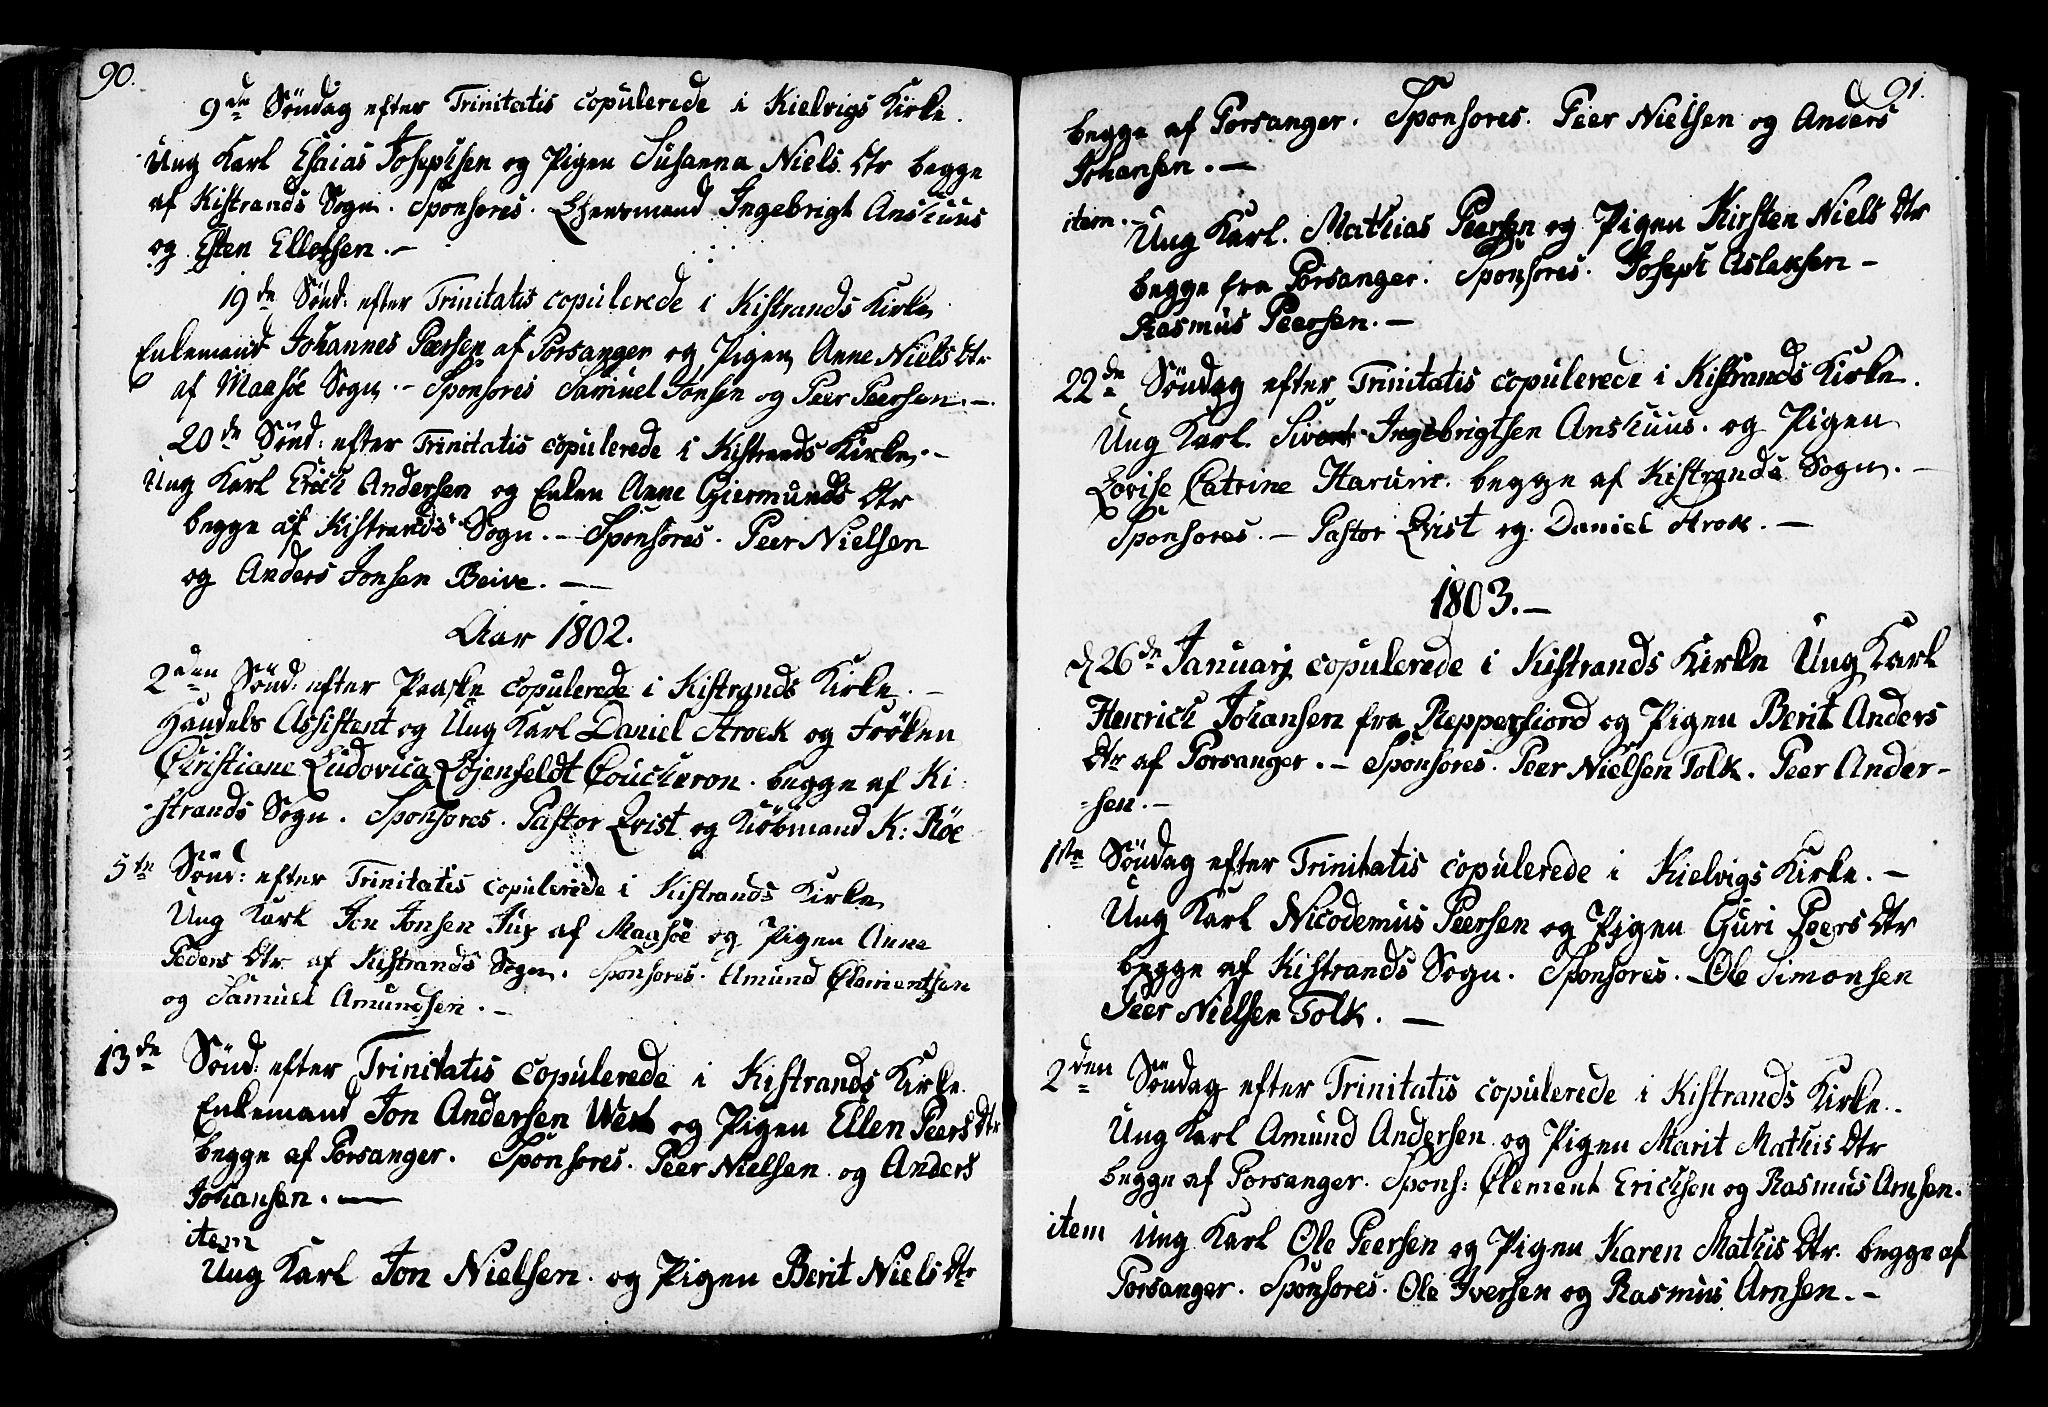 90.
9de Söndag efter Trinitatis copulerede i Kielvigs Kirke.
Ung Karl Esaias Josephsen og Pigen Susanna Niels Dtr begge
af Kistrands Sogn. Sponsores. Lhensmand Ingebrigt Anshuus
og Esten Ellotsen. -
19de Sönd: efter Trinitatis copulerede i Kistrands Kirke
Enkemand Johannes Peersen af Porsanger og Pigen Anne Niels Dtr
af Maasöe Sogn. - Sponsores Samuel Jonsen og Peer Peersen. -
20de Sönd: efter Trinitatis copulerede i Kistrands Kirke. -
Ung Karl Erich Andersen og Enken Anne Giermunds Dtr
begge af Kistrands Sogn. - Sponsores. Peer Nielsen
og Anders Jonsen Beive. -
Aar 1802.
2den Sönd: efter Paaske copulerede i Kistrands Kirke. -
Handels Assistent og Ung Karl Daniel Aroek og Fröken
Christiane Ludovica Löjenfeldt Coucheron. begge af Ki-
-strands Sogn. Sponsores. Pastor Qvist og Kiöbmand K: Röe
5te Sönd: efter Trinitatis copulerede i Kistrands Kirke
Ung Karl Jon Jonsen af Maasöe og Pigen Anne
Peders Dtr af Kistrands Sogn. Sponsores. Amund Clementsen
og Samuel Amundsen. -
13de Sönd: efter Trinitatis copulerede i Kistrands Kirke.
Enkemand Jon Andersen West og Pigen Ellen Peers Dtr
begge af Porsanger. Sponsores. Peer Nielsen og Anders
Johansen. -
item
Ung Karl Jon Nielsen. og Pigen Berit Niels Dtr
91.
begge af Porsanger. Sponsores. Peer Nielsen og Anders
Johansen. -
item. Ung Karl. Mathias Peersen og Pigen Kirsten Niels Dtr
begge fra Porsanger. Sponsores. Joseph Aslaksen -
Rasmus Peersen. -
22de Söndag efter Trinitatis copulerede i Kistrands Kirke.
Ung Karl Sivert Ingebrigtsen Anshuus. og Pigen
Lovise Catrine begge af Kistrands Sogn. -
Sponsores. - Pastor Qvist og Daniel Arok. -
1803. -
d 26de Januarj copulerede i Kistrands Kirke Ung Karl
Henrich Johansen fra Reppersiord og Pigen Berit Anders
Dtr af Porsanger. - Sponsores. Peer Nielsen Tolk. Peer Ander-
-sen. -
1ste Söndag efter Trinitatis copulerede i Kielvigs Kirke. -
Ung Karl Nicodemus Peersen og Pigen Guri Peers Dtr
begge af Kistrands Sogn. Sponsores. Ole Simonsen
Peer Nielsen Tolk. -
2den Söndag efter Trinitatis copulerede i Kistrands Kirke.
Ung Karl Amund Andersen og Pigen Marit Mathis Dtr
begge af Porsanger. Spons: Clement Erichsen og Rasmus Arnsen.
item Ung Karl Ole Peersen og Pigen Karen Mathis Dtr. begge af
Porsanger. Sponsores. Ole Iversen og Rasmus Arnsen. -